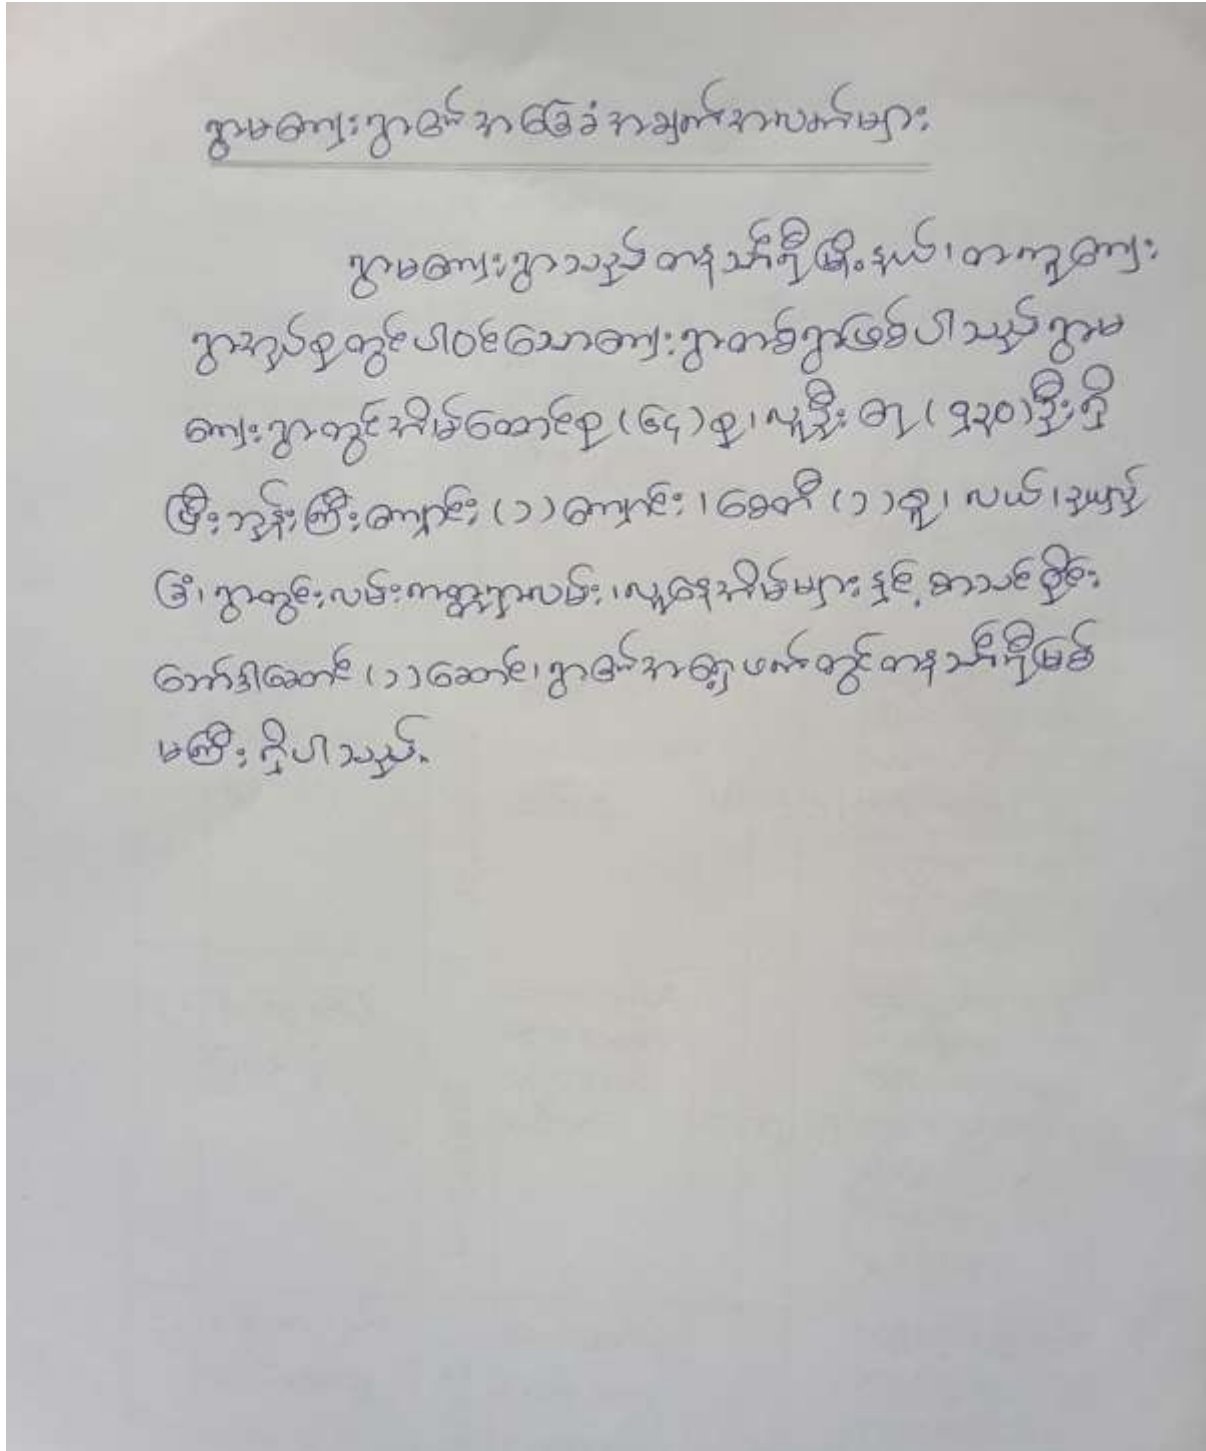 ရွာမကျေးရွာ၏အခြေခံအချက်အလက်များ
ရွာမကျေးရွာသည် တနင်္သာရီမြို့နယ်၊ တကူကျေး
ရွာအုပ်စုတွင်ပါဝင်သောကျေးရွာတစ်ရွာဖြစ်ပါသည် ရွာမ
ကျေးရွာတွင်အိမ်ထောင်စု (၆၄) စု၊ လူဦး (၅၃၀) ဦးရှိ
ပြီးဘုန်းကြီးကျောင်း (၁) ကျောင်း ၊ စေတီ (၁) ဆူ၊ လယ်၊
ခြံ၊ ရွာတွင်းလမ်းကတ္တရာလမ်း၊ လူနေအိမ်များနှင့် စာသင်ကျောင်း
ဘော်ဒါဆောင် (၁) ဆောင်၊ ရွာ၏အရှေ့ဖက်တွင်တနင်္သာရီမြစ်
မကြီး ရှိပါသည်။